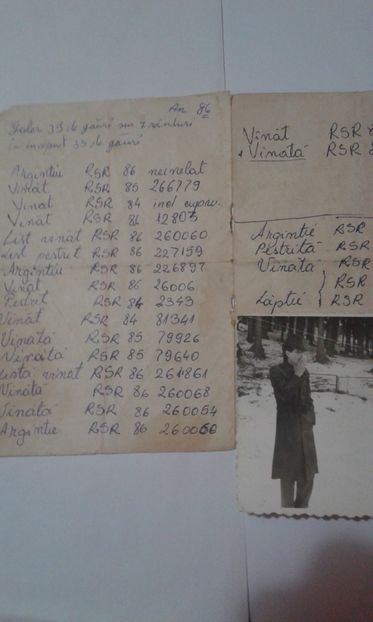 An 86
35 de găuri 7 rânduri
în început 35 de găuri
Argintiu RSR 86 neinelat
Vînăt RSR 85 266779
Vînăt RSR 84 inel
Vînăt RSR 86 12803
List vînăt RSR 86 260060
List pestriț RSR 86 227159
Argintiu RSR 86 226897
Vînăt RSR 86 26006
Pestriț RSR 84 2343
Vînăt RSR 84 81341
Vînătă RSR 85 79926
Vînătă RSR 85 79640
Listă vînăt RSR 86 261861
Vînătă RSR 86 260068
Vînătă RSR 86 260054
Argintie RSR 86 260050
Vînăt RSR 8
+ Vînătă RSR 8
Argintie RSR
Pestriță RSR
Vînătă RSR
RSR
Lăptii RSR